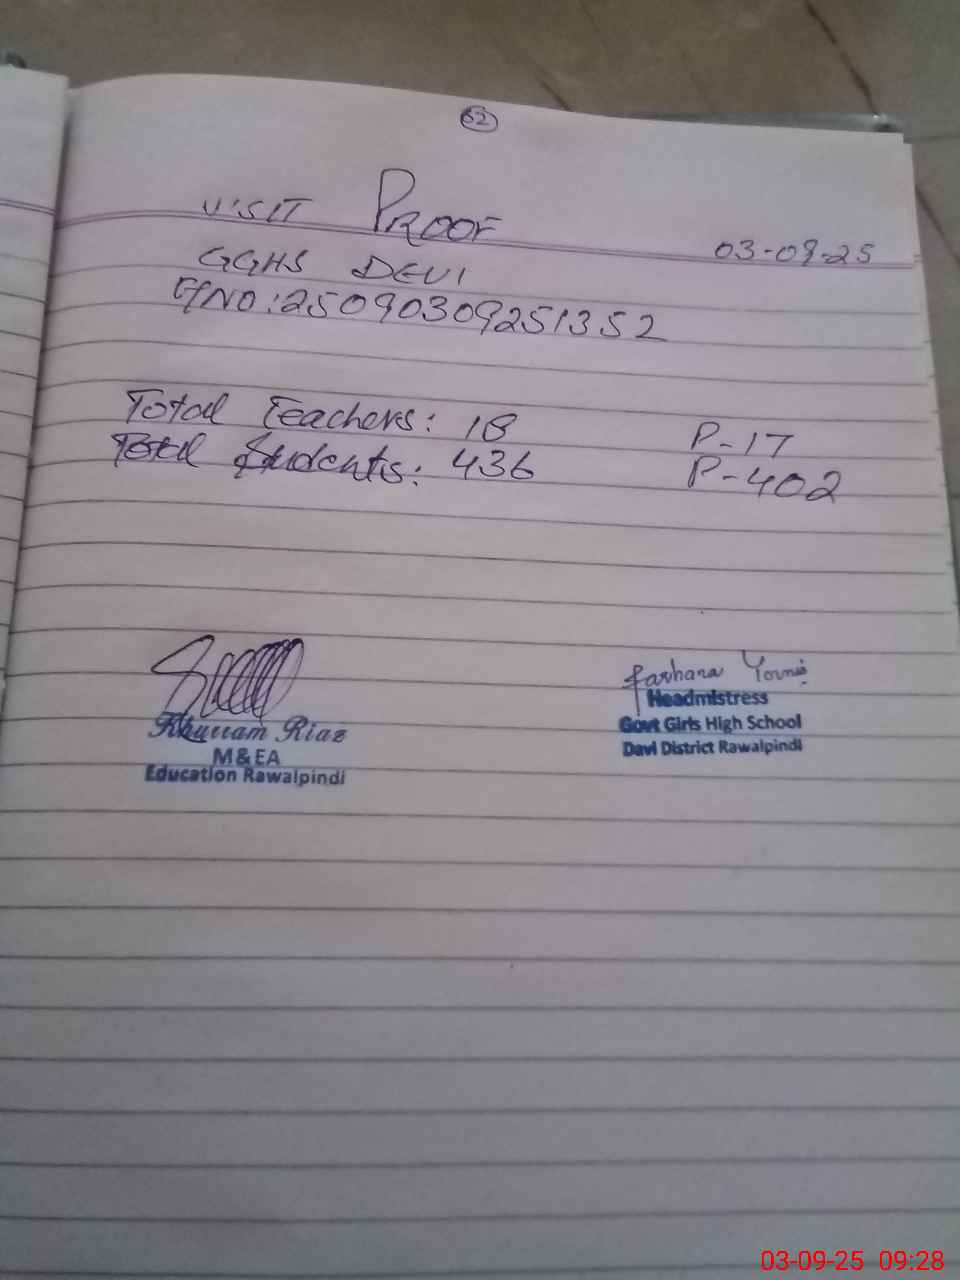 62
VISIT PROOF
03-09-25
GGHS DEVI
G/NO: 25090309251352
Total Teachers: 18 P-17
Total Students: 436 P-402
Khurram Riaz
M&EA
Education Rawalpindi
Farhana Younis
Headmistress
Govt Girls High School
Davi District Rawalpindi
03-09-25 09:28